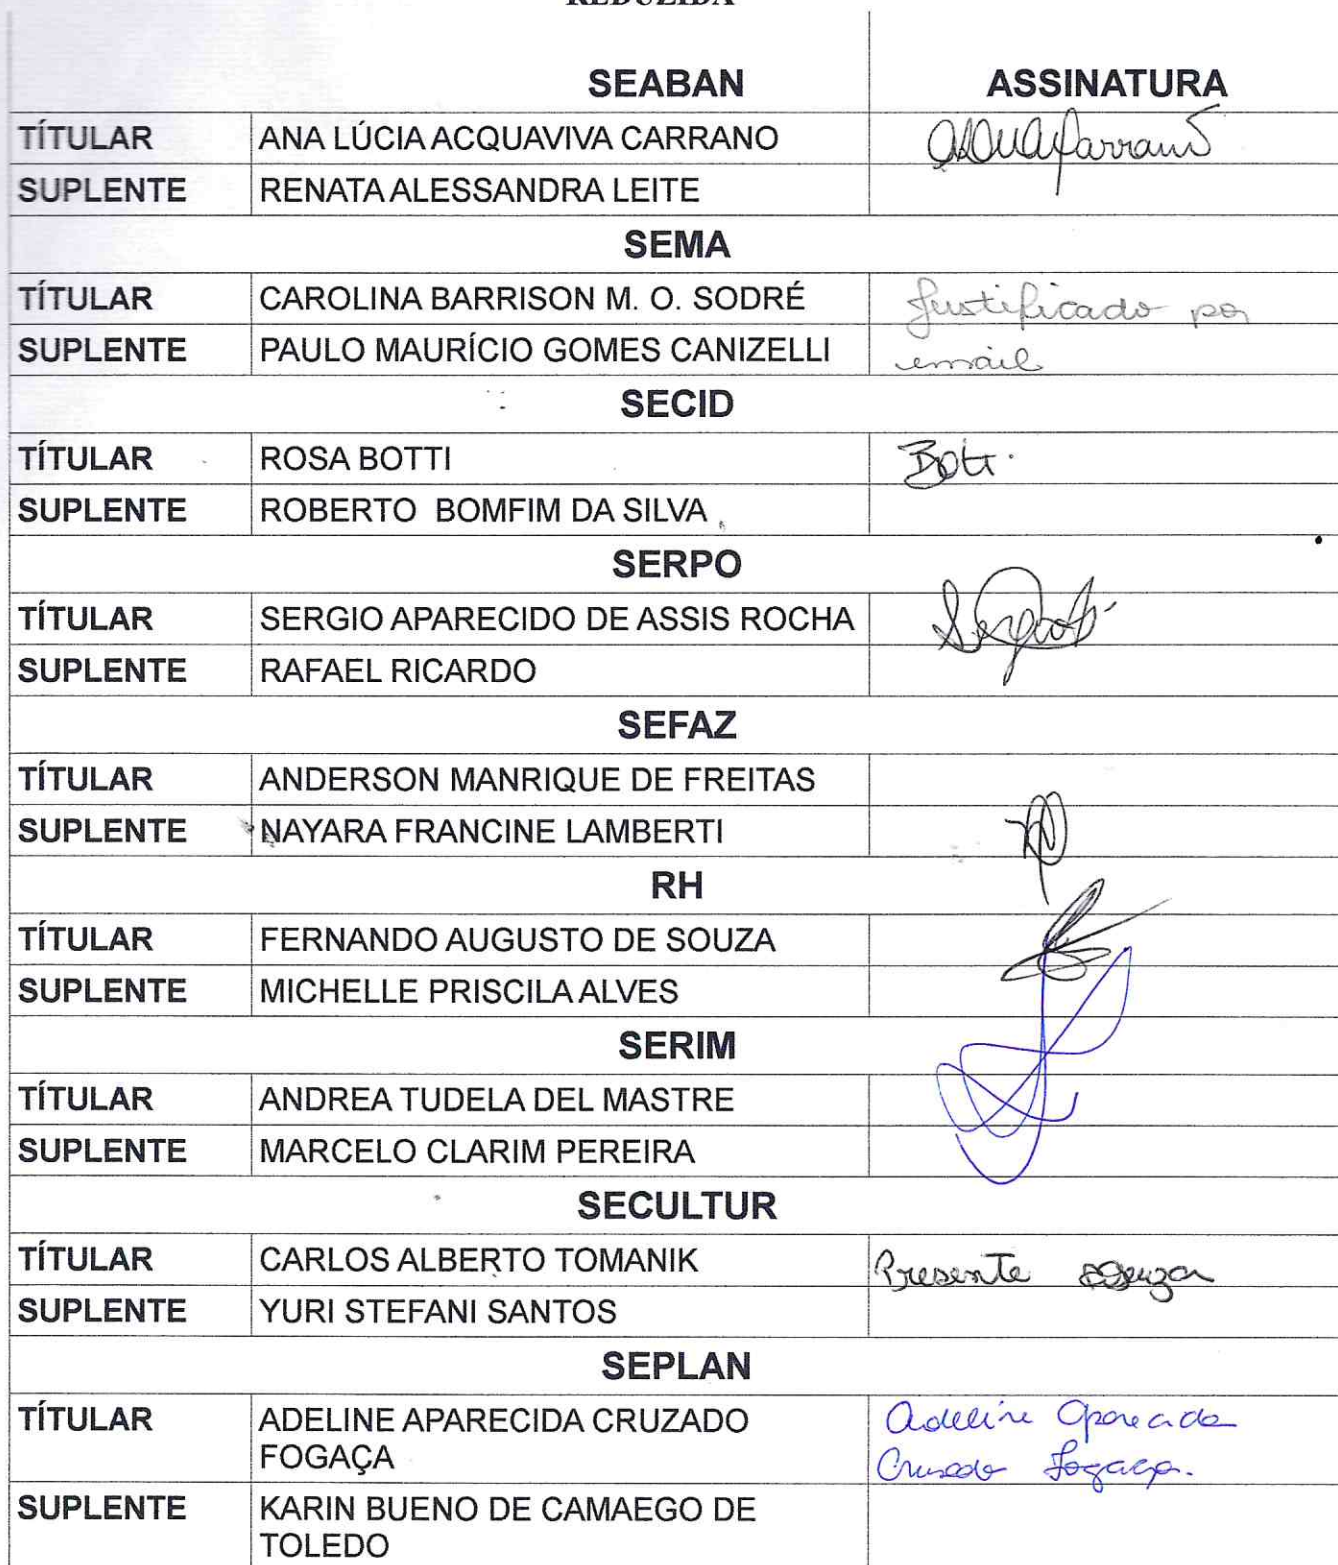 REDUZIDA
SEABAN ASSINATURA
TÍTULAR ANA LÚCIA ACQUAVIVA CARRANO
SUPLENTE RENATA ALESSANDRA LEITE
SEMA
TÍTULAR CAROLINA BARRISON M. O. SODRÉ Justificado por
SUPLENTE PAULO MAURÍCIO GOMES CANIZELLI email
SECID
TÍTULAR ROSA BOTTI Botti
SUPLENTE ROBERTO BOMFIM DA SILVA
SERPO
TÍTULAR SERGIO APARECIDO DE ASSIS ROCHA
SUPLENTE RAFAEL RICARDO
SEFAZ
TÍTULAR ANDERSON MANRIQUE DE FREITAS
SUPLENTE NAYARA FRANCINE LAMBERTI
RH
TÍTULAR FERNANDO AUGUSTO DE SOUZA
SUPLENTE MICHELLE PRISCILA ALVES
SERIM
TÍTULAR ANDREA TUDELA DEL MASTRE
SUPLENTE MARCELO CLARIM PEREIRA
SECULTUR
TÍTULAR CARLOS ALBERTO TOMANIK Presente
SUPLENTE YURI STEFANI SANTOS
SEPLAN
TÍTULAR ADELINE APARECIDA CRUZADO Adeline Aparecida
FOGAÇA Cruzado Fogaça.
SUPLENTE KARIN BUENO DE CAMAEGO DE
TOLEDO